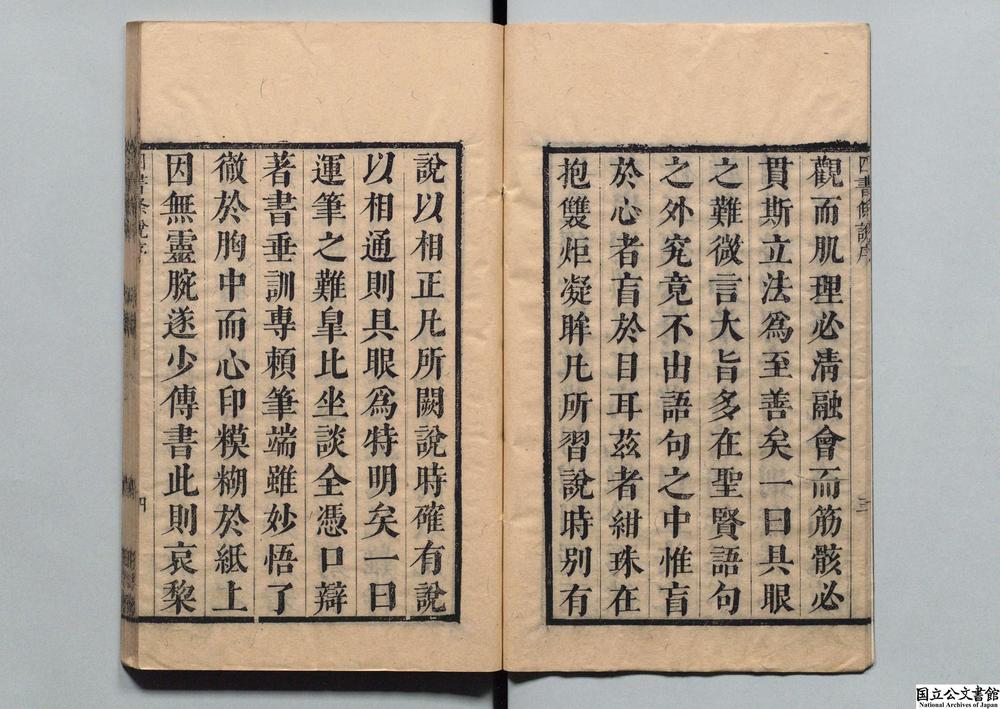 觀而肌理必淸融會而筋骸必
貫斯立法爲至善矣一曰具眼
之難微言大旨多在聖賢語句
之外究竟不出語句之中惟盲
於心者盲於目耳茲者紺珠在
抱雙炬凝眸凡所習說時別有
三
說以相正凡所闕說時確有說
以相通則具眼爲特明矣一曰
運筆之難皐比坐談全憑口辯
著書垂訓專賴筆端雖妙悟了
徹於胸中而心印糢糊於紙上
因無靈腕遂少傳書此則哀棃
四書條說序
四
国立公文書館
National Archives of Japan